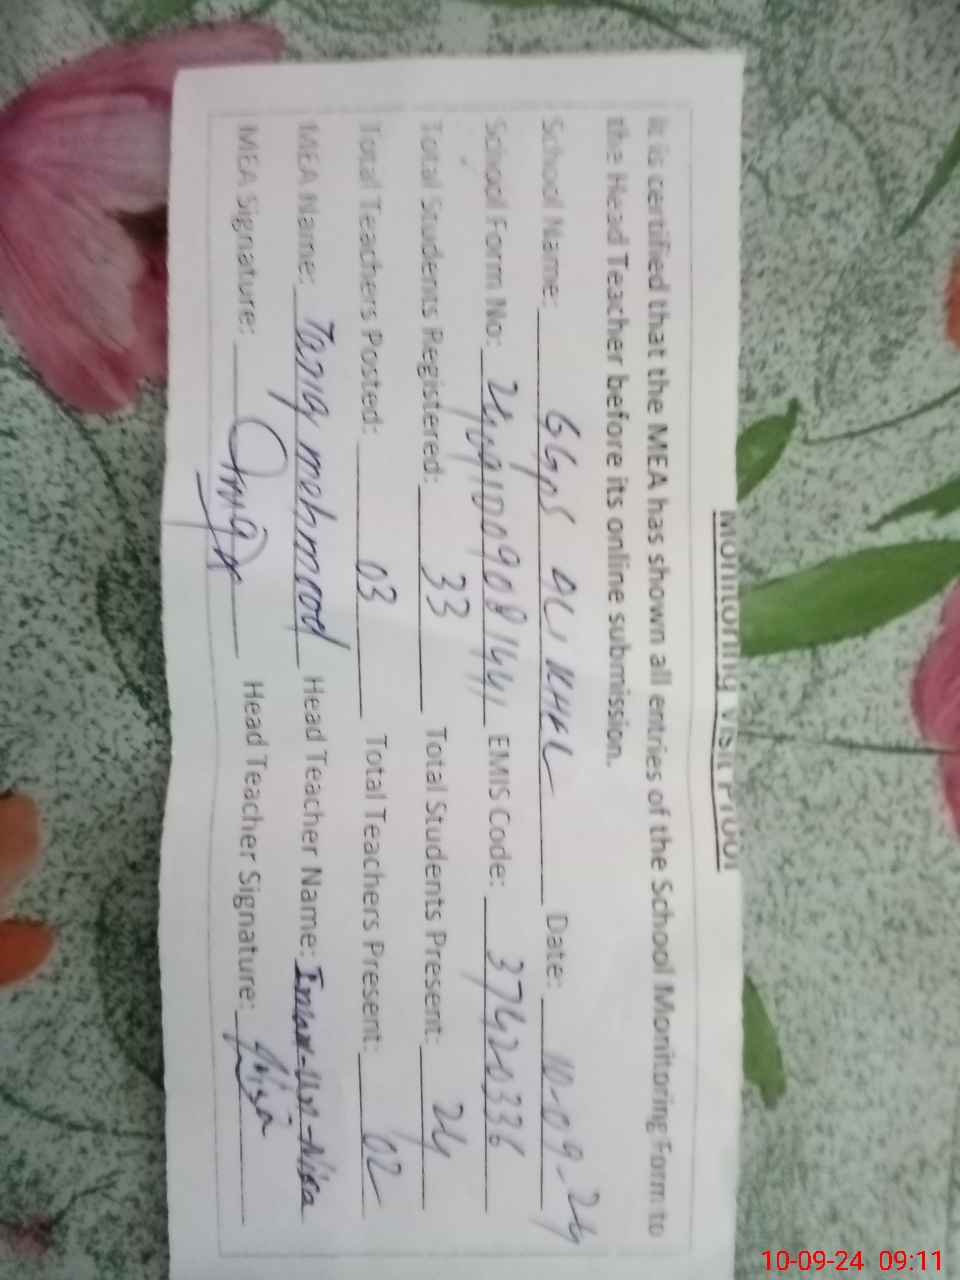 Monitoring Visit Proof
It is certified that the MEA has shown all entries of the School Monitoring Form to
the Head Teacher before its online submission.
School Name: GGPS ALI KHEL Date: 10-09-24
School Form No: 24091009081441 EMIS Code: 37420336
Total Students Registered: 33 Total Students Present: 24
Total Teachers Posted: 03 Total Teachers Present: 02
MEA Name: Tariq mehmood Head Teacher Name: -Un-Nisa
MEA Signature: Head Teacher Signature: Nisa
10-09-24 09:11